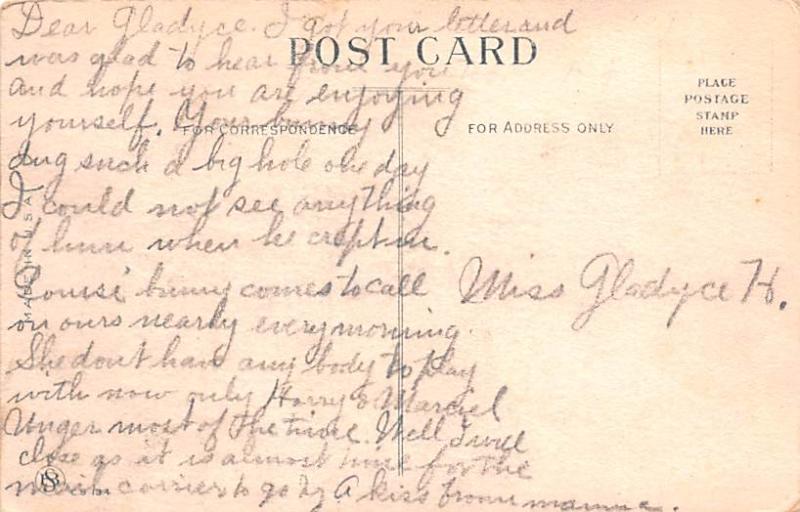 Dear Gladyce. I got your letter and
POST CARD
was glad to hear from you
and hope you are enjoying
yourself. Your bunny
FOR CORRESPONDENCE
FOR ADDRESS ONLY
PLACE
POSTAGE
STAMP
HERE
dug such a big hole one day
I could not see anything
of him when he crept in.
MADE IN U.S.A.
Louise' bunny comes to call
on ours nearly every morning.
Miss Gladyce H.
She dont have any body to play
with now only Harry &
Unger most of the time. Well I will
close as it is almost time for the
carrier to go by A kiss from mamma.